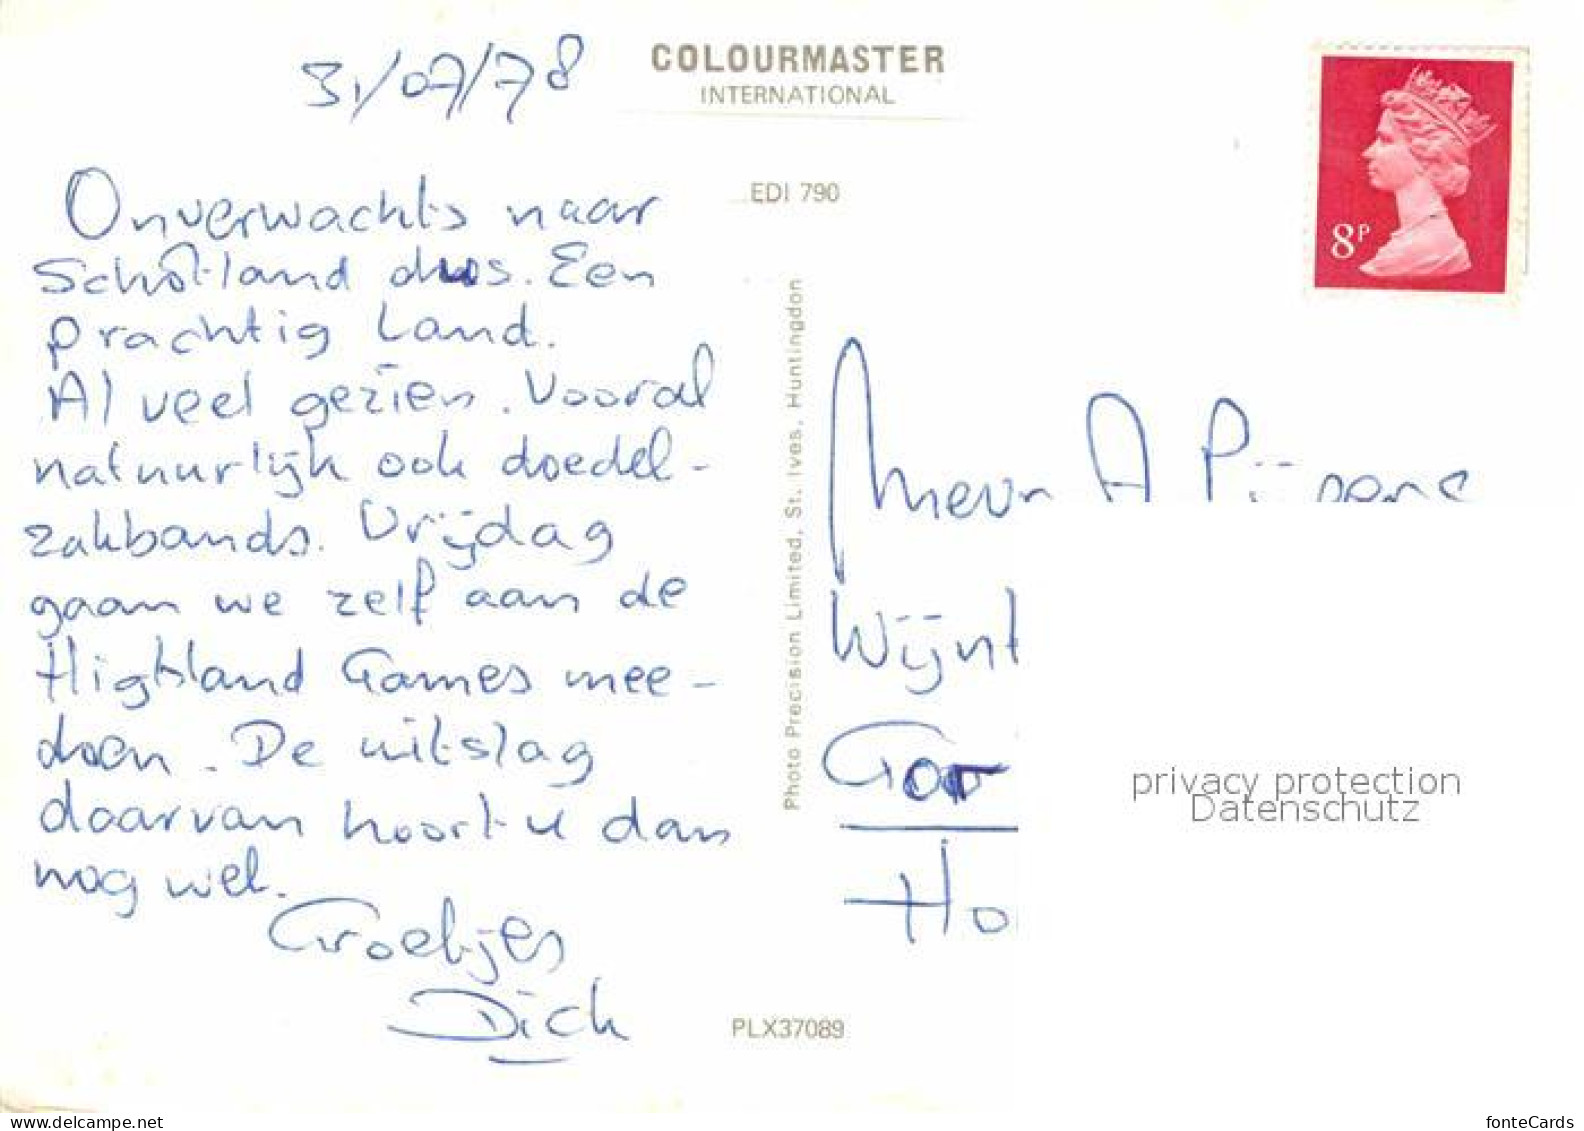 31/07/78
COLOURMASTER
INTERNATIONAL
EDI 790
8P
Onverwachts naar
Schotland dus. Een
prachtig land.
Al veel gezien. Vooral
natuurlijk ook doedel-
zakbands. Vrijdag
gaan we zelf aan de
Highland Games mee-
doen. De uitslag
daarvan hoort u dan
nog wel.
Groetjes
Dick
Photo Precision Limited, St. Ives, Huntingdon
PLX37089
A
Wijnt
Ho
privacy protection
Datenschutz
fonteCards